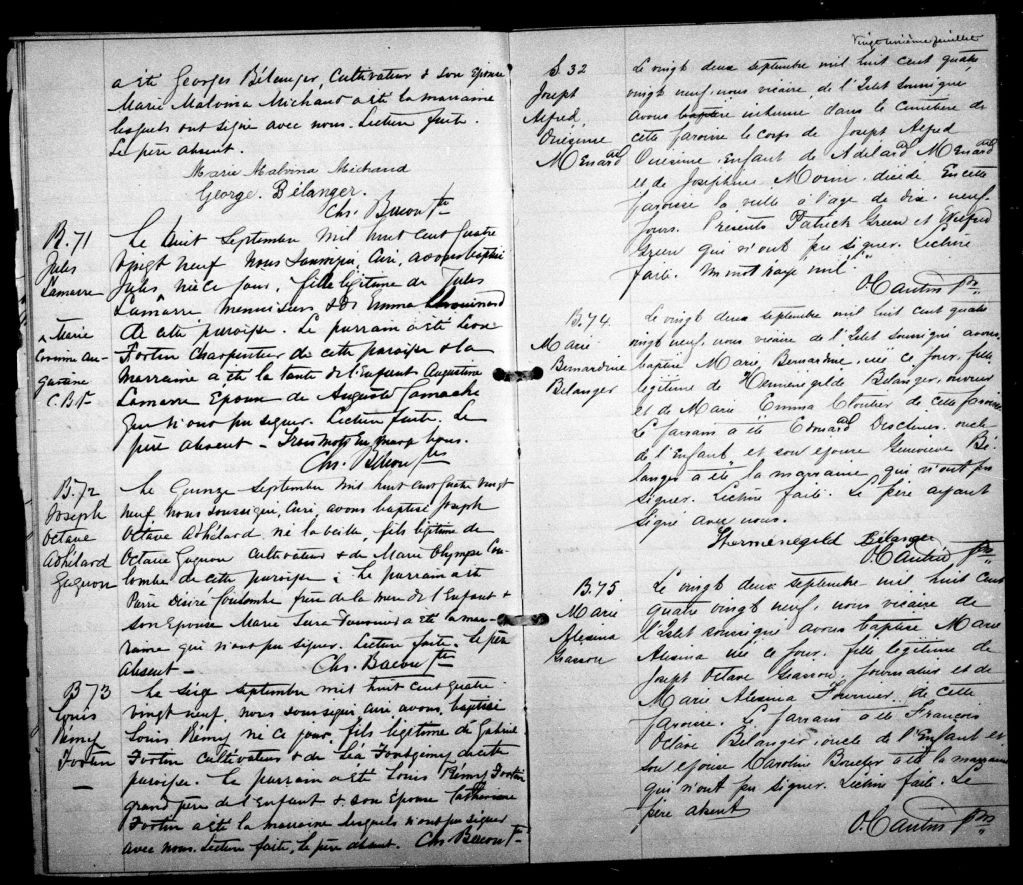 a été Georges Bélanger, cultivateur & son Epouse
Marie Malvina Michaud a été la marraine
lesquels ont signé avec nous. Lecture faite.
Le père absent.
Marie Malvina Michaud
George Bélanger.
Chs. Bacon Ptre
B. 71
Jules
Lamarre
Marie
Corinne Au-
gustine
C. B. Pt
Le huit Septembre mil huit cent quatre
vingt neuf Nous Soussigné, Curé, avons baptisé
Jules, né ce jour, fille légitime de Jules
Lamarre, menuisier & De Emma Chouinard
de cette paroisse. Le parrain a été Léon
Fortin Charpentier de cette paroisse & la
marraine a été la tante de l'enfant Augustine
Lamarre Epouse de Auguste Gamache
Qui n'ont pu signer. Lecture faite. Le
père absent – Trois mots en marge bons.
Chs. Bacon Ptre
B. 72
Joseph
Octave
Adhélard
Gagnon
Le Quinze septembre mil huit cent quatre vingt
neuf Nous soussigné, Curé, avons baptisé Joseph
Octave Adhélard né la veille, fils légitime de
Octave Gagnon Cultivateur & de Marie Olympe Cou-
lombe de cette paroisse ; Le parrain a été
Pierre Désiré Coulombe frère de la mère de l'Enfant &
son Epouse Marie Fournier a été la mar-
raine qui n'ont pu signer. Lecture faite. Le père
absent –
Chs. Bacon Ptre
B 73
Louis
Rémy
Fortin
Le Seize septembre mil huit cent quatre
vingt neuf, nous soussigné, curé avons baptisé
Louis Rémy né ce jour, fils légitime de Gabriel
Fortin Cultivateur & de Léa Fontgimy de cette
paroisse. Le parrain a été Louis Rémy Fortin
grand père de l'Enfant & son Epouse Catherine
Fortin a été la marraine lesquels n'ont pu signer
avec nous. Lecture faite, le père absent. Chs. Bacon Pt
Vingt unième feuillet
S. 32
Joseph
Alfred
Onésime
Ménard
Le vingt deux septembre mil huit cent quatre
vingt neuf, nous vicaire, de l'Islet soussigné
avons baptisé inhumé dans le cimetière de
cette paroisse le corps de Joseph Alfred
Onésime, Enfant de Adélard Ménard
et de Joséphine Morin, décédé En cette
paroisse la veille à l'age de dix-neuf
jours. Présents Patrick Green et Wilfrid
Green qui n'ont pu signer. Lecture
faite. Un mot rayé nul.
O. Cantin Ptre
B. 74.
Marie
Bernardine
Bélanger
Le vingt deux septembre mil huit cent quatre
vingt neuf, nous vicaire de l'Islet soussigné avons
baptisé Marie Bernardine, née ce jour, fille
légitime de Herménégilde Bélanger, ouvrier
et de Marie Emma Cloutier de cette paroisse.
Le parrain a été Edouard Deschenes, oncle
de l'Enfant et son épouse Geneviève Bé-
langer a été la marraine qui n'ont pu
signer. Lecture faite. Le père ayant
signé avec nous.
Herménégild Bélanger
O. Cantin Ptre
B. 75
Marie
Alesina
Giasson
Le vingt deux septembre mil huit cent
quatre vingt neuf, nous vicaire de
l'Islet soussigné avons baptisé Marie
Alesina née ce jour, fille légitime de
Joseph Octave Giasson, journalier et de
Marie Alesina Fournier, de cette
paroisse. Le parrain a été François
Octave Bélanger, oncle de l'Enfant et
son épouse Caroline Boucher a été la marraine
qui n'ont pu signer. Lecture faite. Le
père absent
O. Cantin Ptre